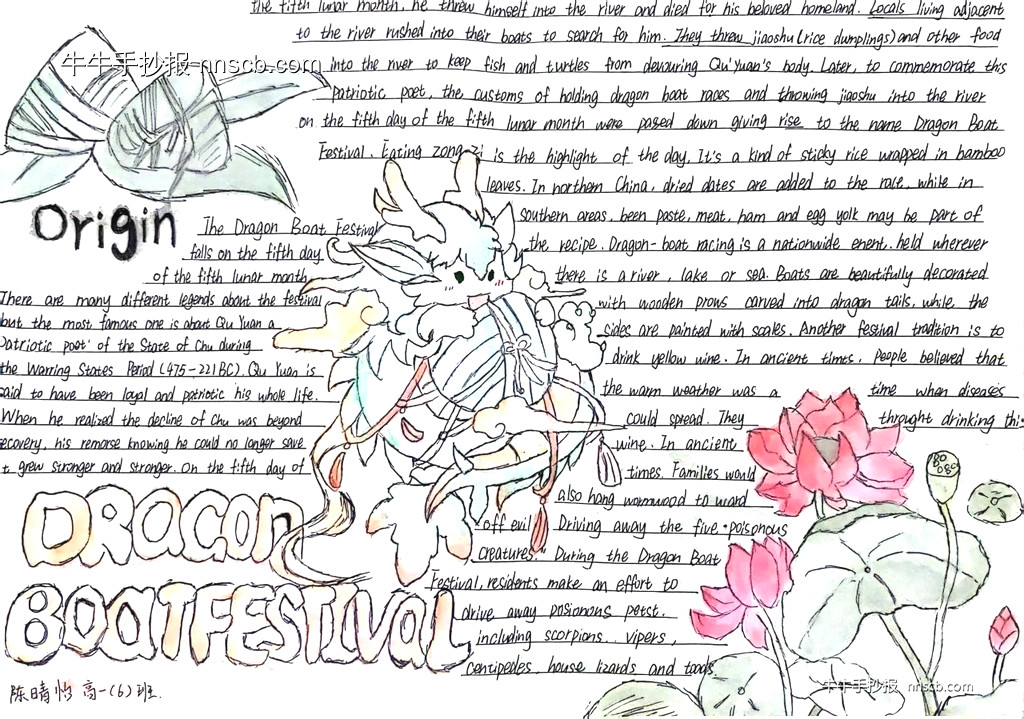 牛牛手抄报-nnscb.com
Origin
The Dragon Boat Festival
falls on the fifth day
of the fifth lunar month
There are many different legends about the festival
but the most famous one is about Qu Yuan a
patriotic poet' of the State of Chu during
the Warring States Period (475-221BC). Qu Yuan is
said to have been loyal and patriotic his whole life.
When he realized the decline of Chu was beyond
ecovery, his remorse knowing he could no longer save
t grew stronger and stronger. On the fifth day of
the fifth lunar month, he threw himself into the river and died for his beloved homeland. Locals living adjacent
to the river rushed into their boats to search for him. They threw jiaoshu (rice dumplings) and other food
into the river to keep fish and turtles from devouring Qu'Yuan's body. Later, to commemorate this
patriotic poet, the customs of holding dragon boat races and throwing jiaoshu into the river
on the fifth day of the fifth lunar month were pased down giving rise to the name Dragon Boat
Festival. Eating zongzi is the highlight of the day, It's a kind of sticky rice wrapped in bamboo
leaves. In northern China, dried dates are added to the while in
southern areas, been paste, meat, ham and egg yolk may be part of
the recipe. Dragon-boat racing is a nationwide enent. held wherever
there is a river, lake or sea. Boats are beautifully decorated
with wooden prows carved into dragon tails, while the
sides are painted with scales. Another festival tradition is to
drink yellow wine. In ancient times. People believed that
the warm weather was a time when diseases
could spread. They throught drinking this
wine. In ancient
times. Families would
also hang wormwood to ward
off evil. Driving away the five "poisonous
creatures." During the Dragon Boat
Festival, residents make an effort to
drive away posionous petst.
including scorpions. vipers,
centipedes, house lizards and toads.
DRAGON
BOATFESTIVAL
陈晴怡 高一(6)班.
牛牛手抄报 nnscb.com